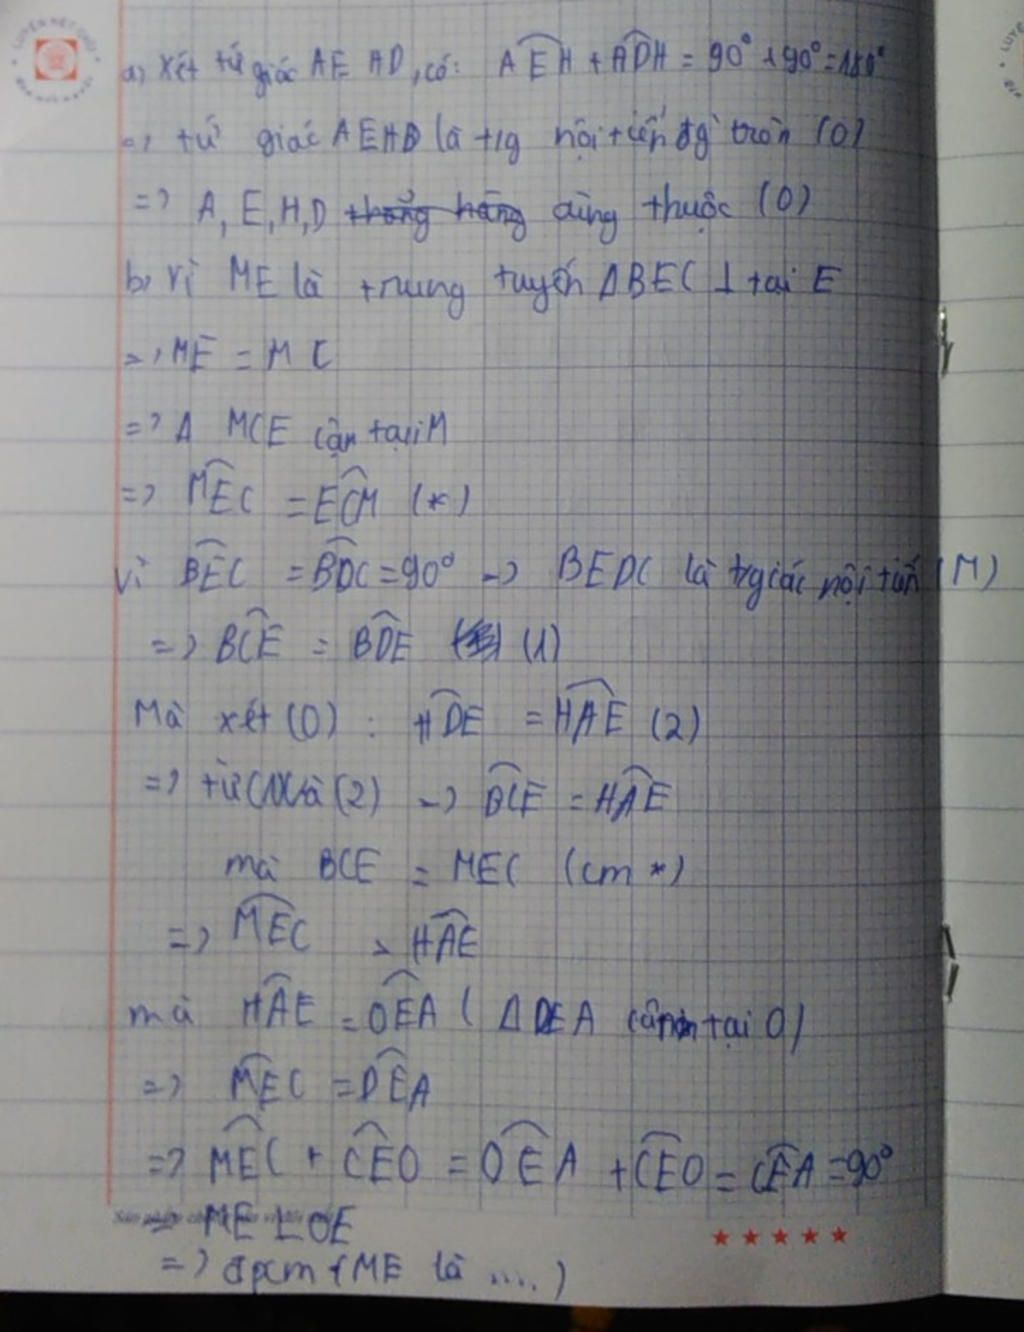 a) Xét tứ giác AE AD, có: AEH + ADH = 90° + 90° = 180°
=> tứ giác AEHD là t/g nội tiếp đg tròn (O)
=> A, E, H, D thẳng hàng cùng thuộc (O)
b) Vì ME là trung tuyến ΔBEC ⊥ tại E
=> ME = MC
=> Δ MCE cân tại M
=> MEC = ECM (*)
Vì BEC = BDC = 90° => BEDC là tg giác nội tiếp (M)
=> BCE = BDE (1)
Mà xét (O) : HDE = HAE (2)
=> từ (1) và (2) => BCE = HAE
mà BCE = MEC (cm *)
=> MEC = HAE
mà HAE = OEA ( Δ OEA cân tại O)
=> MEC = OEA
=> MEC + CEO = OEA + CEO = CEA = 90°
=> ME ⊥ OE
=> đpcm (ME là ....)